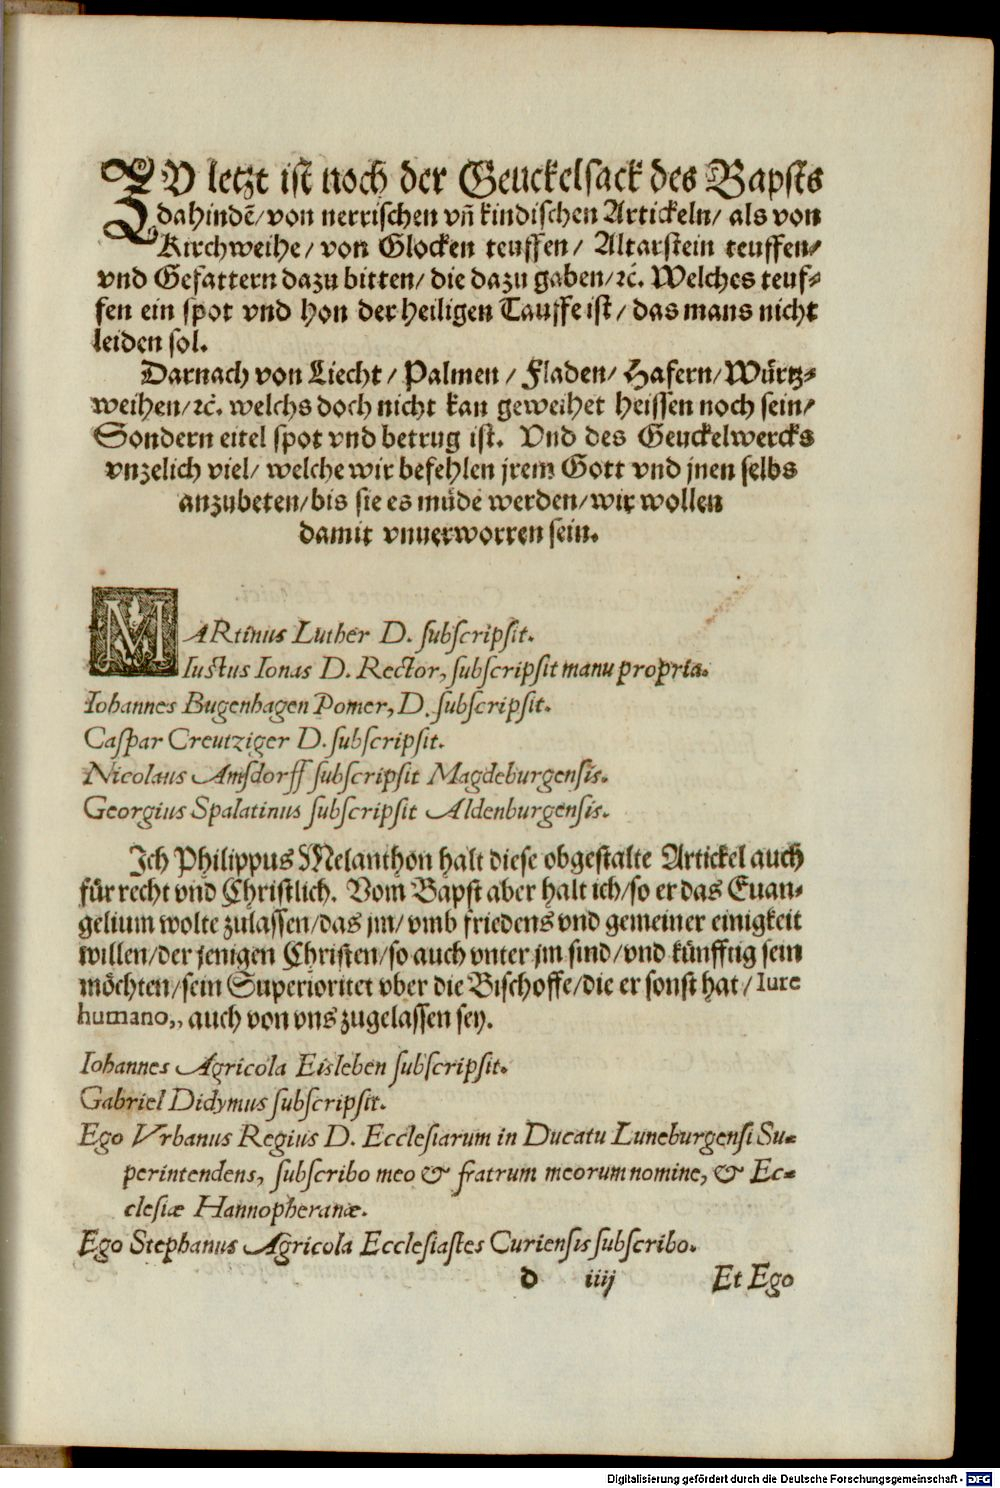 ZU letzt ist noch der Geuckelsack des Bapsts
dahindẽ/ von nerrischen vñ kindischen Artickeln/ als von
Kirchweihe/ von Glocken teuffen/ Altarstein teuffen/
vnd Gefattern dazu bitten/ die dazu gaben/ ꝛc̃. Welches teuf-
fen ein spot vnd hon der heiligen Tauffe ist/ das mans nicht
leiden sol.
Darnach von Liecht/ Palmen/ Fladen/ Hafern/ Würtz-
weihen/ ꝛc̃. welchs doch nicht kan geweihet heissen noch sein/
Sondern eitel spot vnd betrug ist. Vnd des Geuckelwercks
vnzelich viel/ welche wir befehlen jrem Gott vnd jnen selbs
anzubeten/ bis sie es müde werden/ wir wollen
damit vnuerworren sein.
MARtinus Luther D. subscripsit.
Iustus Ionas D. Rector, subscripsit manu propria.
Iohannes Bugenhagen Pomer, D. subscripsit.
Caspar Creutziger D. subscripsit.
Nicolaus Amsdorff subscripsit Magdeburgensis.
Georgius Spalatinus subscripsit Aldenburgensis.
Ich Philippus Melanthon halt diese obgestalte Artickel auch
für recht vnd Christlich. Vom Bapst aber halt ich/ so er das Euan-
gelium wolte zulassen/ das jm/ vmb friedens vnd gemeiner einigkeit
willen/ der jenigen Christen/ so auch vnter jm sind/ vnd künfftig sein
möchten/ sein Superioritet vber die Bischoffe/ die er sonst hat/ Iure
humano,, auch von vns zugelassen sey.
Iohannes Agricola Eisleben subscripsit.
Gabriel Didymus subscripsit.
Ego Vrbanus Regius D. Ecclesiarum in Ducatu Luneburgensi Su-
perintendens, subscribo meo & fratrum meorum nomine, & Ec-
clesiæ Hannopheranæ.
Ego Stephanus Agricola Ecclesiastes Curiensis subscribo.
d iiij Et Ego
Digitalisierung gefördert durch die Deutsche Forschungsgemeinschaft - DFG